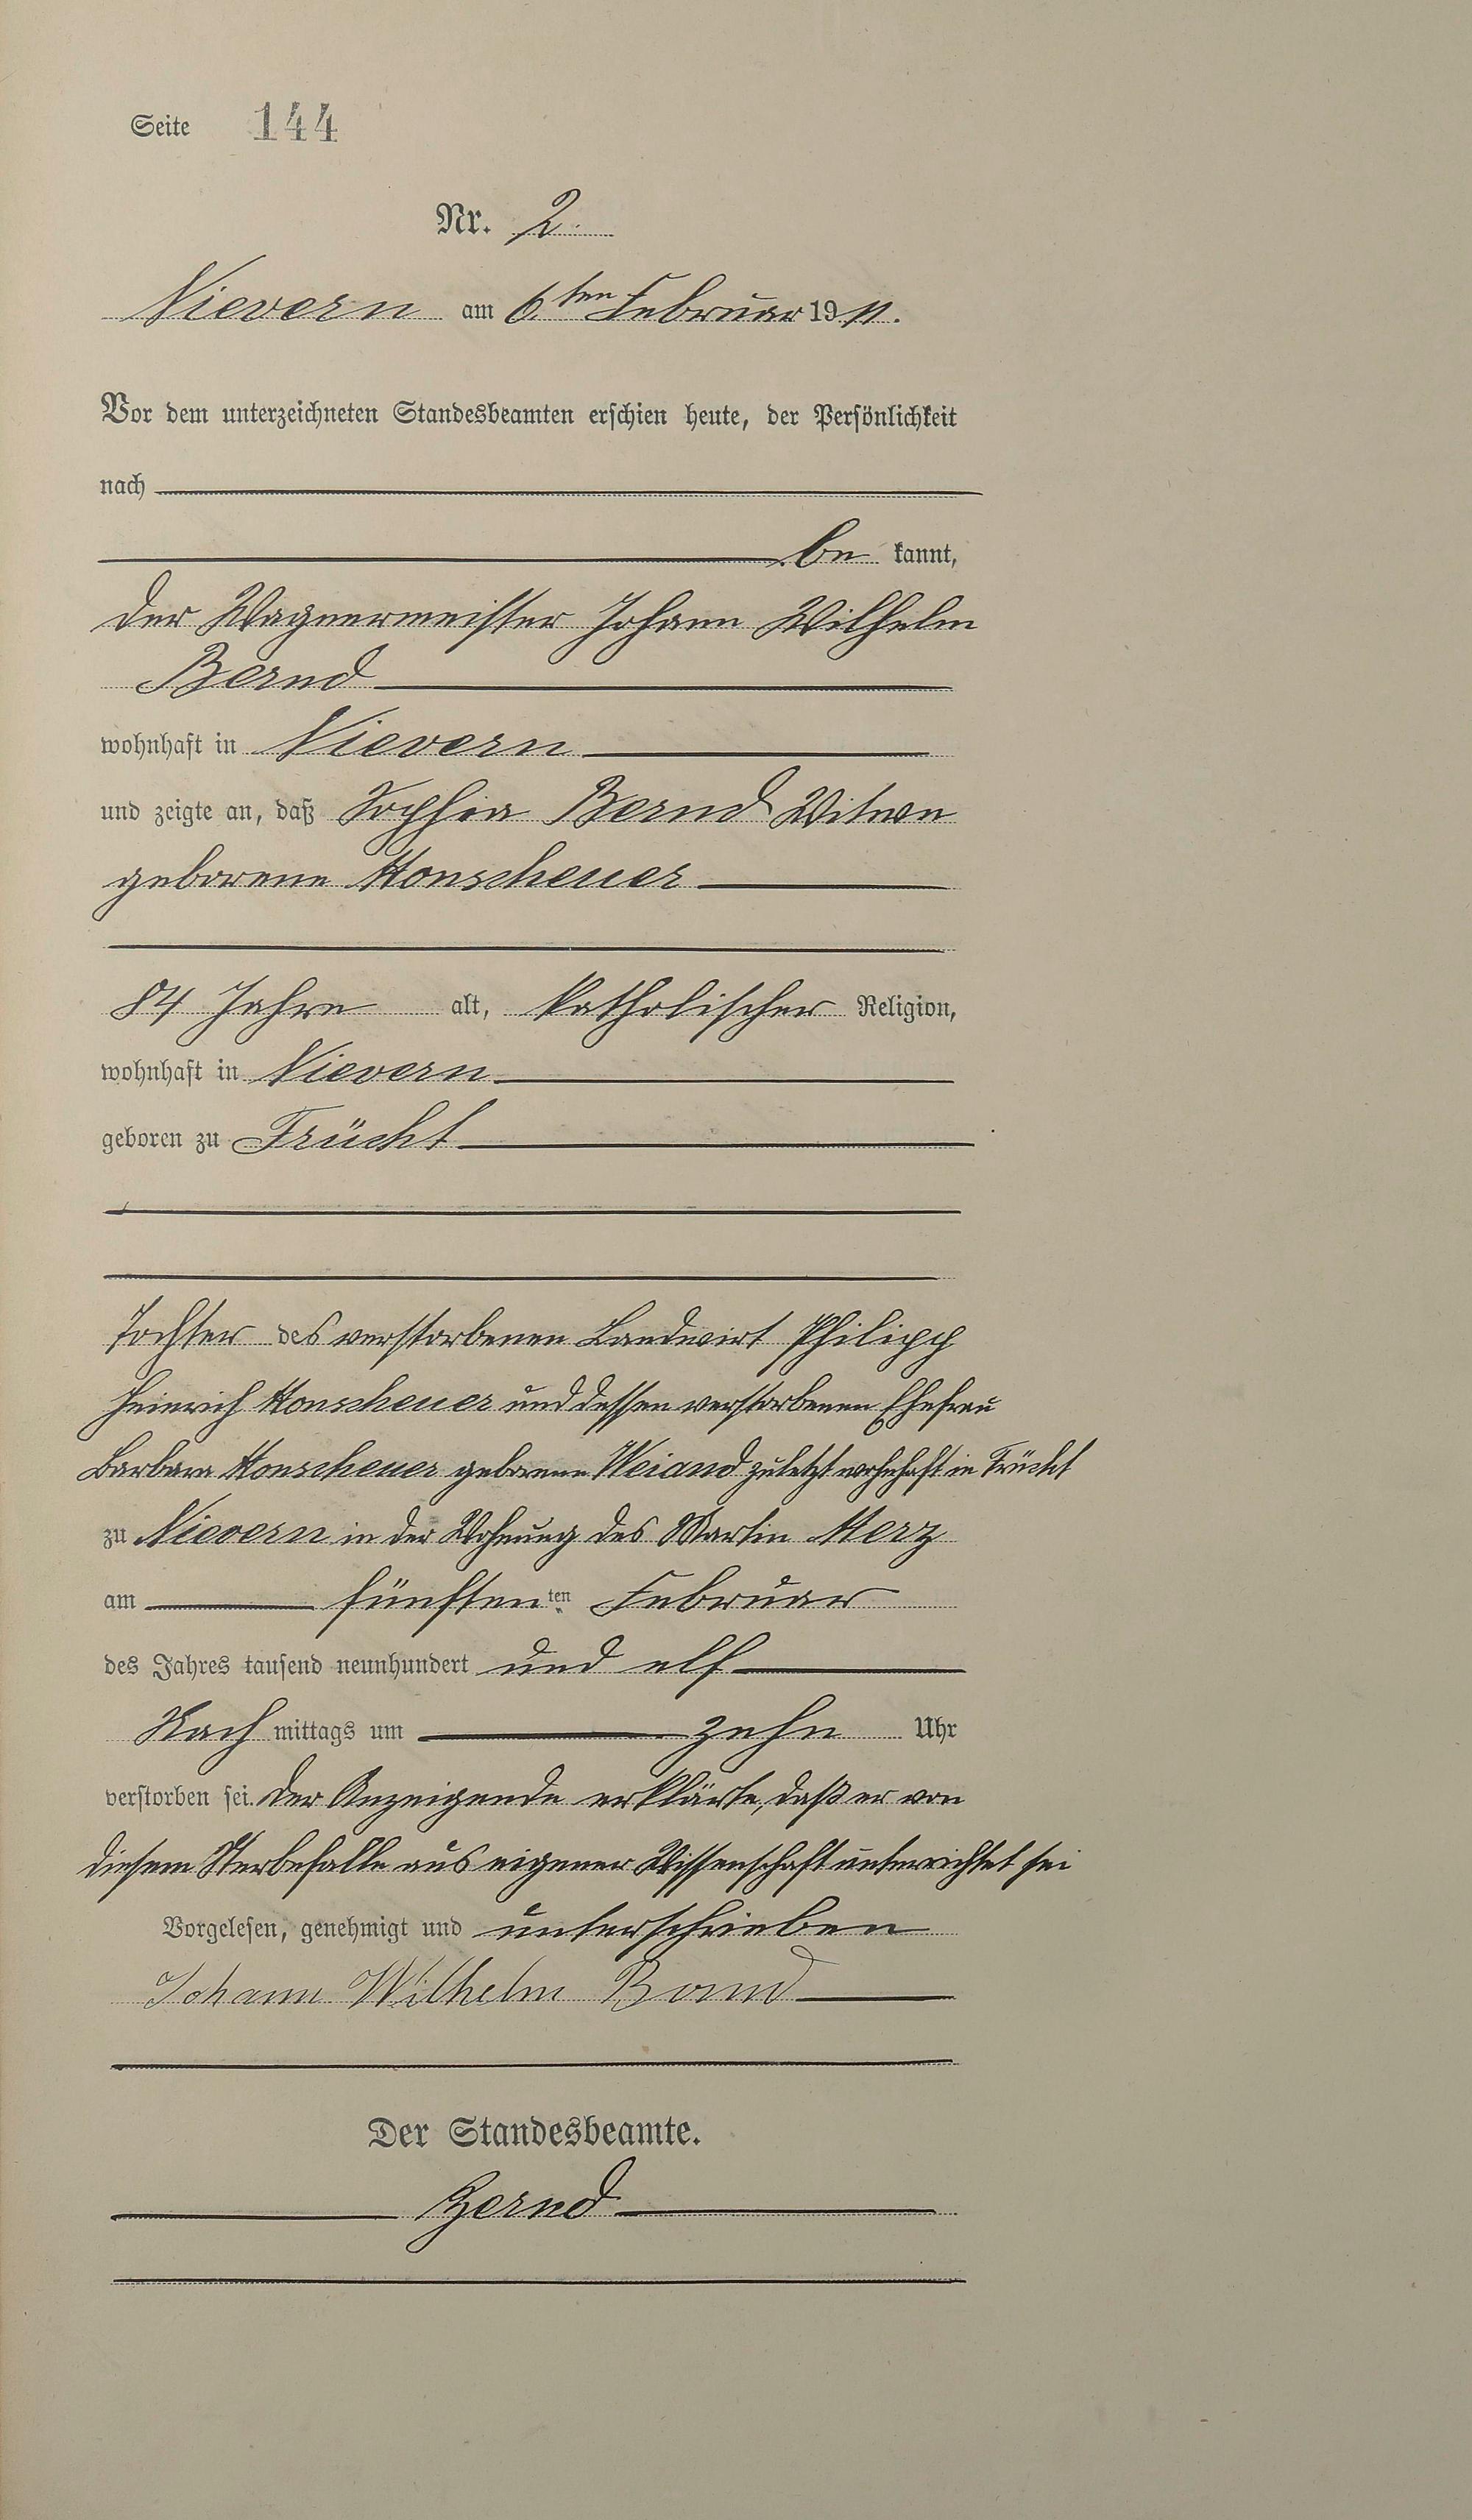 Seite 144
Nr. 2.
Nievern am 6.ten Februar 1911.
Vor dem unterzeichneten Standesbeamten erschien heute, der Persönlichkeit
nach
be kannt,
der Wagnermeister Johann Wilhelm
Bernd
wohnhaft in Nievern
und zeigte an, daß Sophia Bernd Witwe
geborene Honscheuer
84 Jahre alt, katholischer Religion,
wohnhaft in Nievern
geboren zu Frücht
Tochter des verstorbenen Landwirt Philipp
Heinrich Honscheuer und dessen verstorbenen Ehefrau
Barbara Honscheuer geborene Weiand zuletzt wohnhaft in Frücht
zu Nievern in der Wohnung des Martin Herz
am fünften ten Februar
des Jahres tausend neunhundert und elf
Nach mittags um zehn Uhr
verstorben sei. Der Anzeigende erklärte, daß er von
diesem Sterbefalle aus eigener Wissenschaft unterrichtet sei
Vorgelesen, genehmigt und unterschrieben
Johann Wilhelm Bernd
Der Standesbeamte.
Bernd